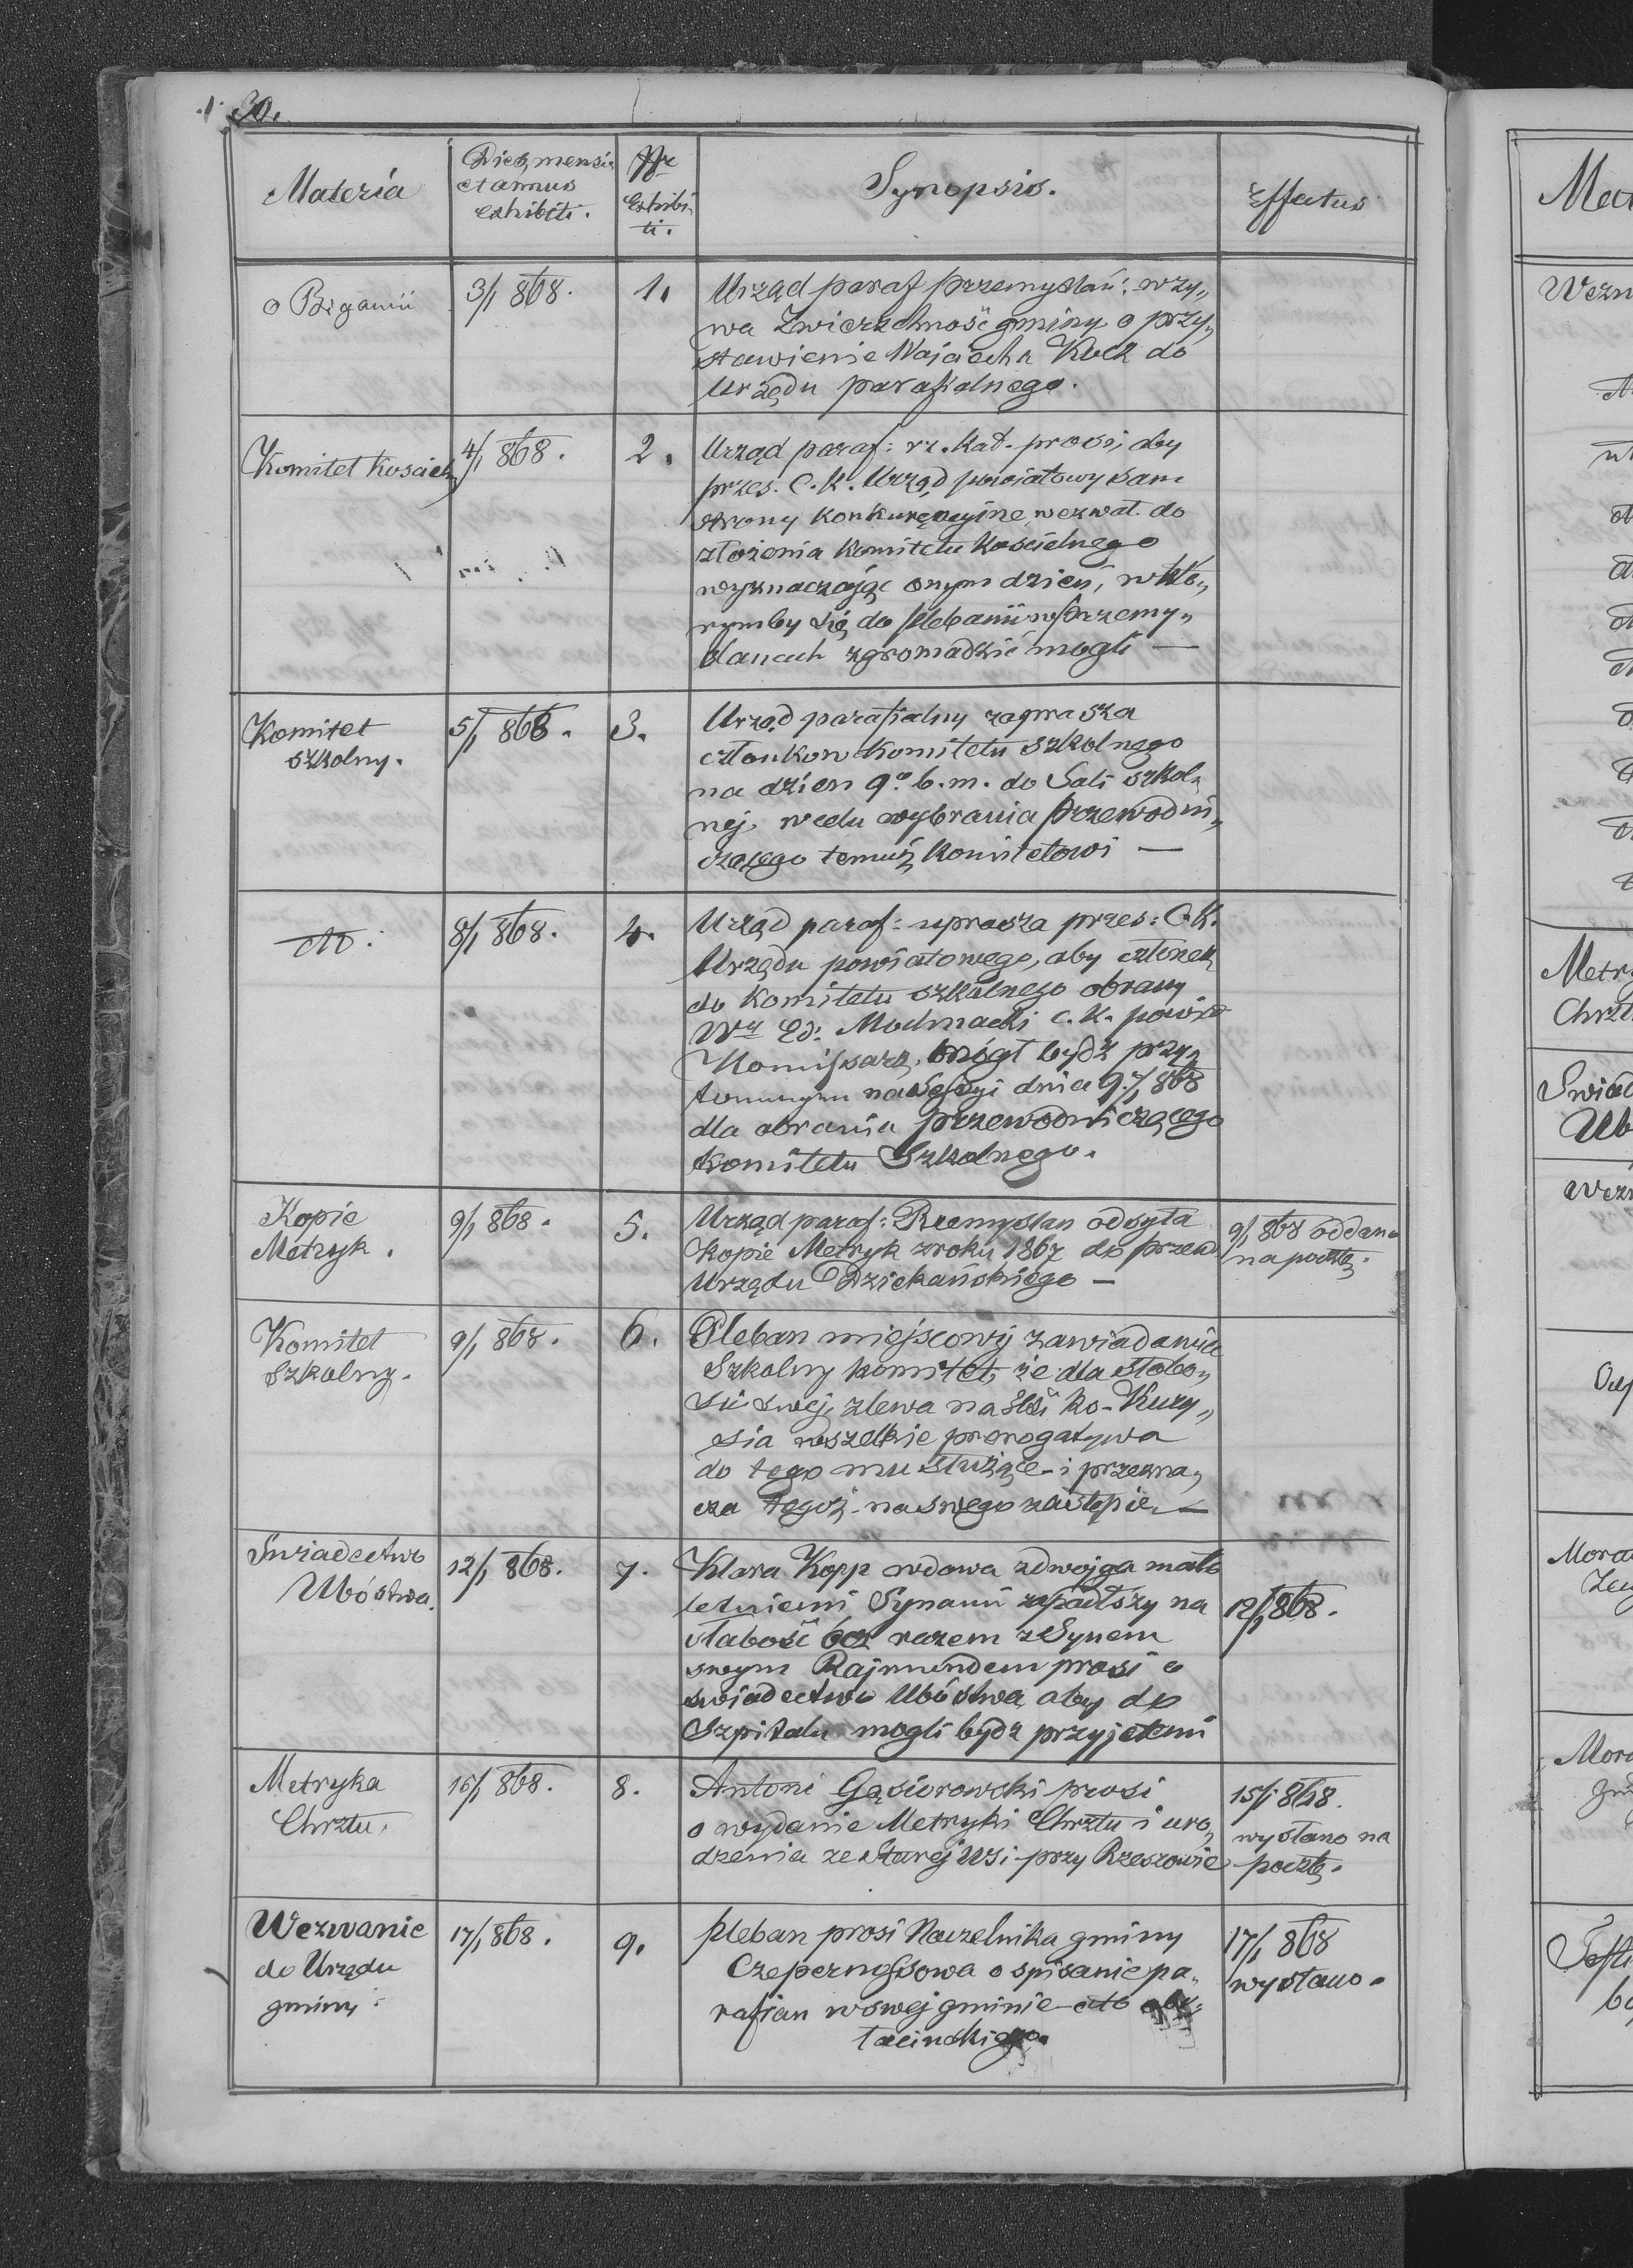 30.
Materia
Dies, mensis
et annus
exhibiti.
Nr
Exhibi
ti.
Synopsis.
Effectus
o Bigamii
3/1 868.
1.
Urząd paraf przemyslań: wzy„
wa Zwierzchność gminy o przy„
stawienie Wojciecha Kuck do
Urzędu parafialnego.
Komitet Kosciel
4/1 868.
2.
Urząd paraf: rz. Kat. prosi, aby
przes. C. K. Urząd powiatowy sam
strony konkurencyjne wezwał do
złożenia Komitetu Kościelnego
wyznaczając onym dzień, w któ„
rymby się do plebanii w Przemy„
slanach zgromadzić mogli —
Komitet
szkolny.
5/1 868.
3.
Urząd parafialny zaprasza
członkow Komitetu szkolnego
na dzien 9º b. m. do Sali szkol„
nej w celu wybrania Przewodni„
czącego temuż Komitetowi —
dto:
8/1 868.
4.
Urząd paraf: uprasza przes: C. K.
Urzędu powiatowego, aby członek
do Komitetu szkolnego obrany
Wny Ed: Mochnacki c. K. powiat
Komissarz, mógł bydź przy„
tomnym na Sessyi dnia 9/1 868
dla obrania przewodniczącego
Komitetu Szkolnego.
Kopie
Metryk.
9/1 868.
5.
Urząd paraf: Przemyslan odsyła
Kopie Metryk z roku 1867 do przew
Urzędu Dziekańskiego —
9/1 868 oddano
na pocztę.
Komitet
Szkolny.
9/1 868.
6.
Pleban miejscowy zawiadamia
Szkolny komitet, że dla słabo„
ści swej, zlewa na
sia wszelkie prerogatywa
do tego mu służące - i przezna„
cza tegoż - na swego zastępcę —
Swiadectwo
Ubóstwa.
12/1 868.
7.
Klara Kopp wdowa z dwojga mało
letniemi Synami zapadłszy na
słabość ócz razem z Synem
swym Rajmundem prosi o
swiadectwo Ubóstwa aby do
Szpitalu mogli bydz przyjętemi
12/1 868.
Metryka
Chrztu.
15/1 868.
8.
Antoni Gąsiorowski prosi
o wydanie Metryki Chrztu i uro„
dzenia ze Starej Wsi przy Rzeszowie
15/1 868.
wysłano na
pocztę.
Wezwanie
do Urzędu
gminy:
17/1 868.
9.
Pleban prosi Naczelnika gminy
Czepernossowa o spisanie pa„
rafian w swej gminie
łacinskiego.
17/1 868
wysłano.